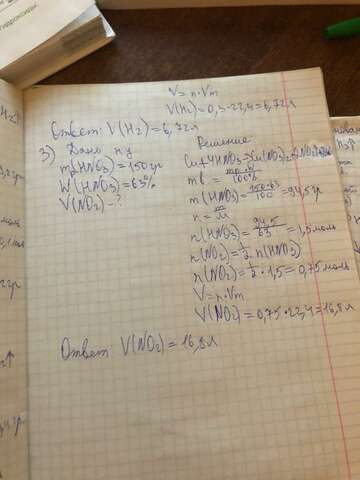 V=n·Vm
V(H₂)=0,3·22,4=6,72л
Ответ: V(H₂)=6,72л
3) Дано н.у
m(HNO₃)=150гр
W(HNO₃)=63%
V(NO₂)-?
Решение
mв=
100%
m(HNO₃)=150·63/100=94,5гр
n=m/M
n(HNO₃)=94,5/63=1,5моль
n(NO₂)=1/2 n(HNO₃)
n(NO₂)=1/2·1,5=0,75моль
V=n·Vm
V(NO₂)=0,75·22,4=16,8л
Ответ V(NO₂)=16,8л